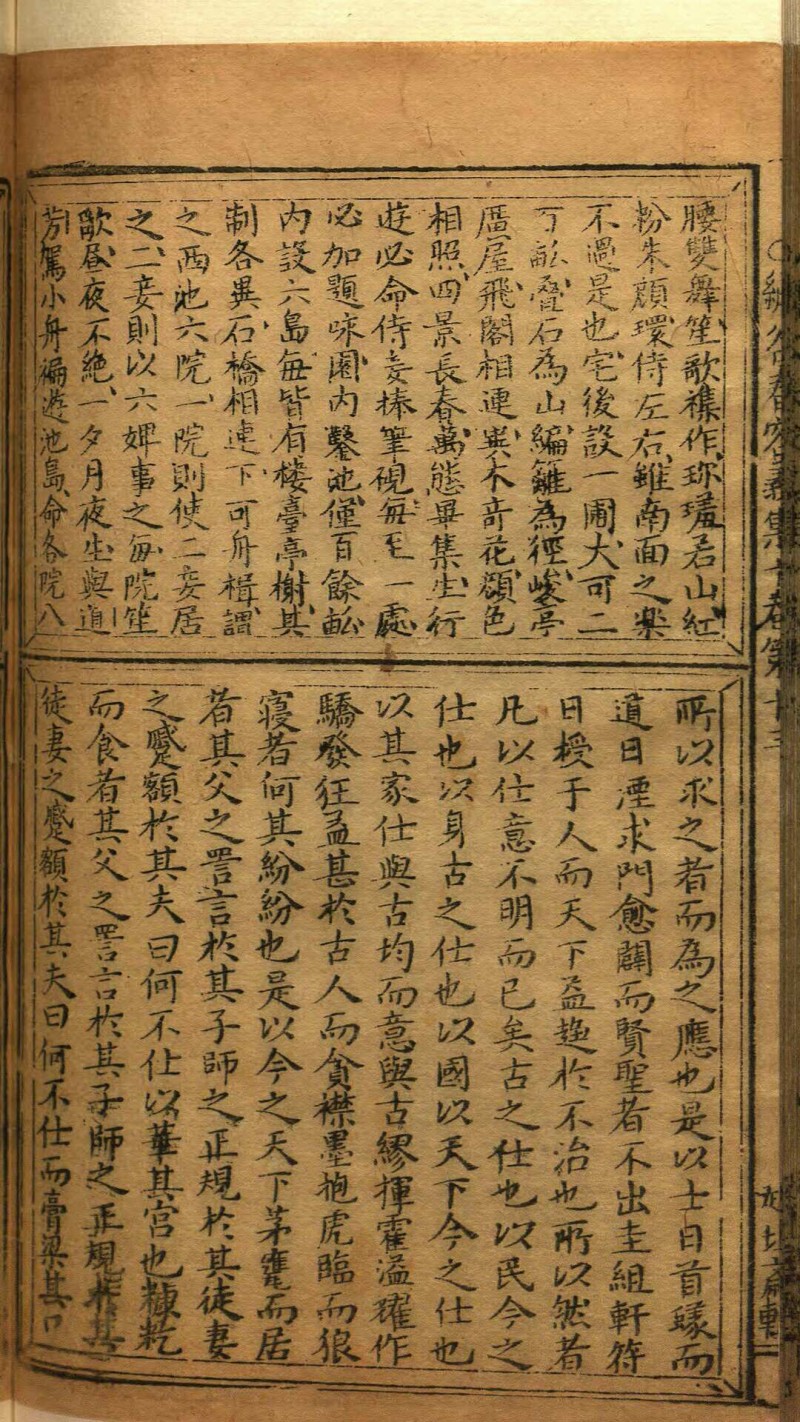 腰雙舞笙歌襍作珎羞若山紅
粉朱顔環侍左右雖南面之樂
不過是也宅後設一圃大可二
丁畆疊石為山編籬為徑峻亭
廣屋飛閣相連異木奇花顔色
相照四景長春萬態畢集生行
遊必命侍妾捧筆硯每至一處
必加題咏園内鑿池僅百餘畆
内設六島每皆有楼臺亭榭其
制各異石橋相連下可舟楫謂
之西池六院一院則使二妾居
之二妾則以六婢事之每院笙
歌昼夜不絶一夕月夜生與道
芳駕小舟遍遊池島命各院八
所以求之者而為之應也是以士日首緣而
道日湮求門愈闢而賢聖者不出圭組軒符
日授于人而天下益趋於不治也所以然者
凡以仕意不明而已矣古之仕也以民今之
仕也以身古之仕也以國以天下今之仕也
以其家仕與古均而意與古繆揮霍溢耀作
驕發狂孟甚於古人而貪襟墨抱虎臨而狼
寝若何其紛紛也是以今之天下茅甕而居
者其父之詈言於其子師之正規於其徒妻
之蹙額於其夫曰何不仕以華其宫也糠籺
而食者其父之詈言於其子師之正規於其
徒妻之蹙額於其夫曰何不仕而膏梁其口